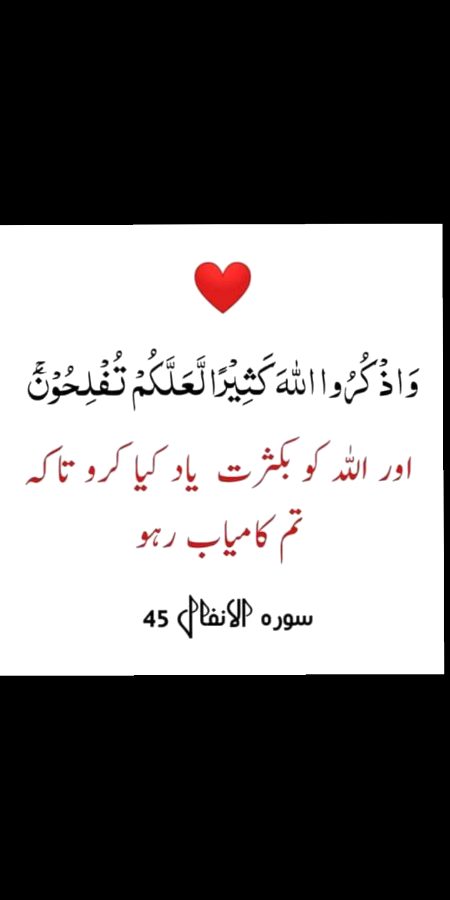 وَاذْكُرُوا اللّٰهَ كَثِيْرًا لَّعَلَّكُمْ تُفْلِحُوْنَۚ
اور اللہ کو بکثرت یاد کیا کرو تاکہ
تم کامیاب رہو
سورہ الانفال 45